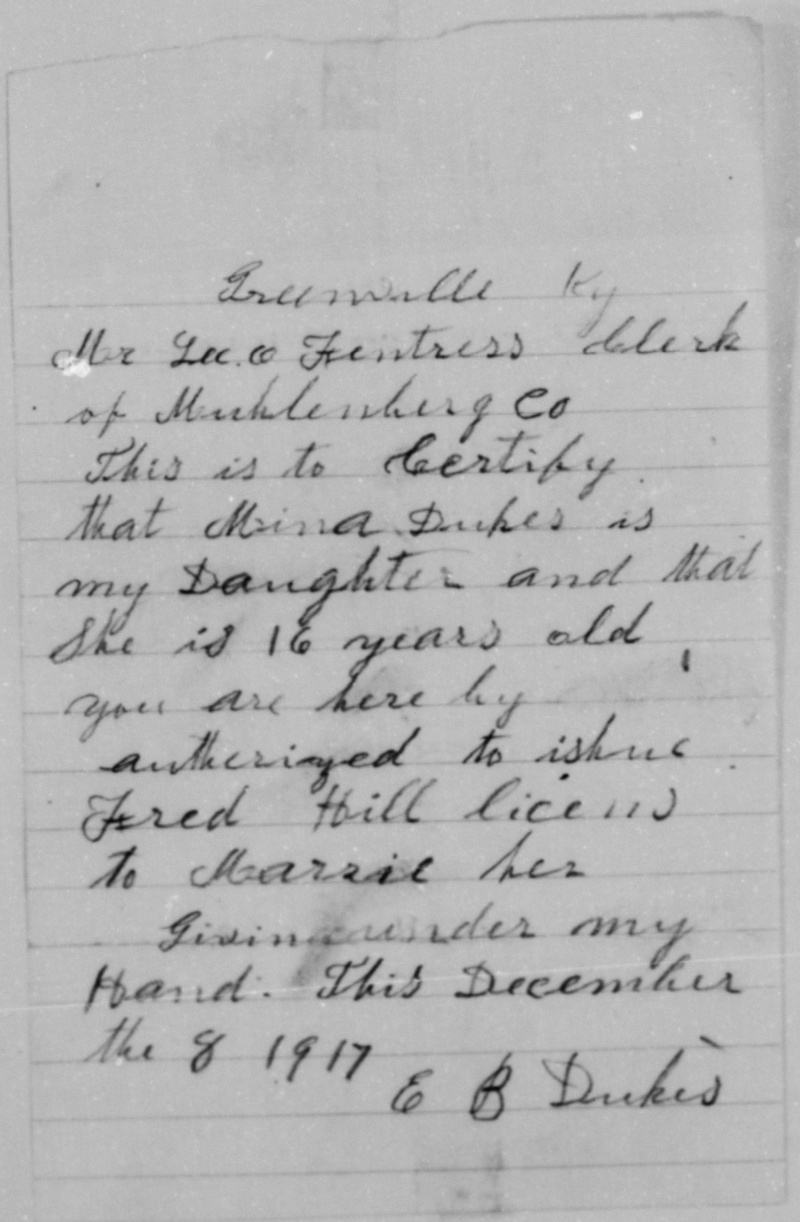 Greenville Ky
Mr Geo. O Fentress Clerk
of Muhlenberg Co
This is to Certify
that Mina Dukes is
my Daughter and that
She is 16 years old
you are here by
autherized to ishue
Fred Hill licens
to Marrie her
Givin under my
Hand. This December
the 8 1917
E B Dukes